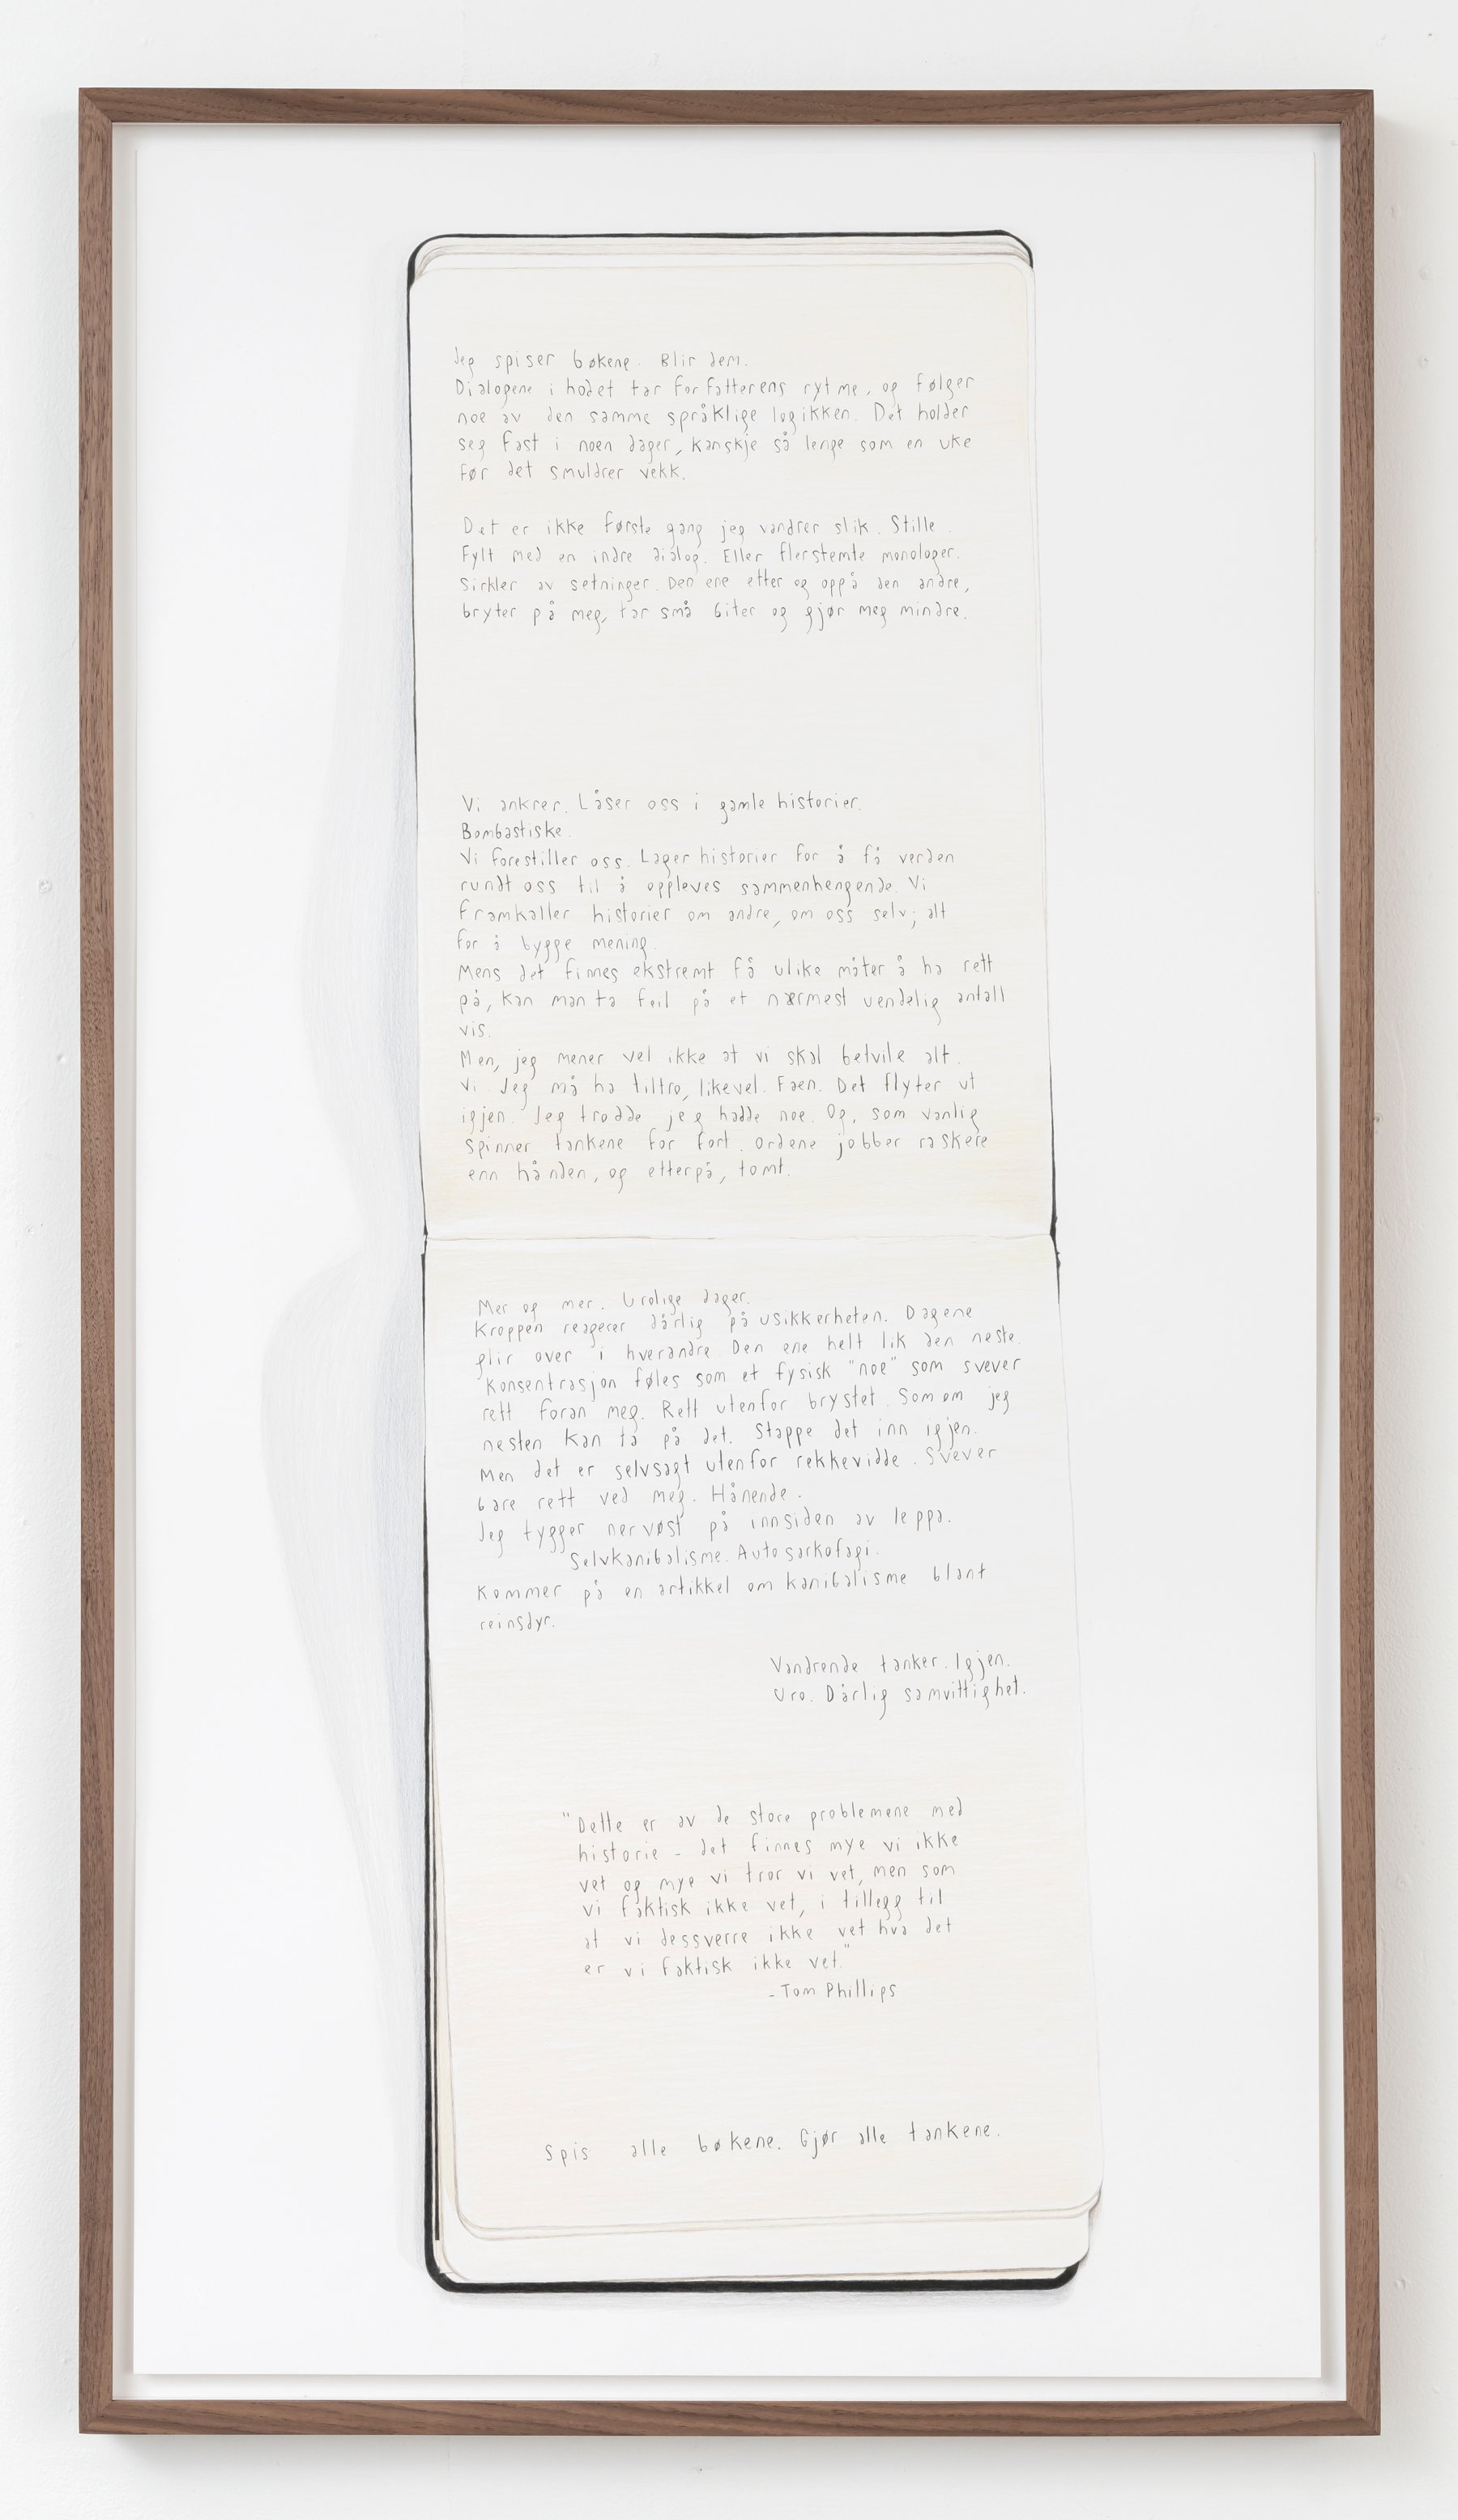 Jeg spiser bøkene. Blir dem.
Dialogene i hodet tar forfatterens rytme, og følger
noe av den samme språklige logikken. Det holder
seg fast i noen dager, kanskje så lenge som en uke
før det smuldrer vekk.
Det er ikke første gang jeg vandrer slik. Stille.
Fylt med en indre dialog. Eller flerstemte monologer.
Sirkler av setninger. Den ene etter og oppå den andre,
bryter på meg, tar små biter og gjør meg mindre.
Vi ankrer. Låser oss i gamle historier.
Bombastiske.
Vi forestiller oss. Lager historier for å få verden
rundt oss til å oppleves sammenhengende. Vi
framkaller historier om andre, om oss selv; alt
for å bygge mening.
Mens det finnes ekstremt få ulike måter å ha rett
på, kan man ta feil på et nærmest uendelig antall
vis.
Men, jeg mener vel ikke at vi skal betvile alt.
Vi. Jeg må ha tiltro, likevel. Faen. Det flyter ut
igjen. Jeg trodde jeg hadde noe. Og, som vanlig
spinner tankene for fort. Ordene jobber raskere
enn hånden, og etterpå, tomt.
Mer og mer. Urolige dager.
Kroppen reagerer dårlig på usikkerheten. Dagene
glir over i hverandre. Den ene helt lik den neste.
Konsentrasjon føles som et fysisk "noe" som svever
rett foran meg. Rett utenfor brystet. Som om jeg
nesten kan ta på det. Stappe det inn igjen.
Men det er selvsagt utenfor rekkevidde. Svever
bare rett ved meg. Hånende.
Jeg tygger nervøst på innsiden av leppa.
Selvkanibalisme. Autosarkofagi.
Kommer på en artikkel om kanibalisme blant
reinsdyr.
Vandrende tanker. Igjen.
Uro. Dårlig samvittighet.
"Dette er av de store problemene med
historie - det finnes mye vi ikke
vet og mye vi tror vi vet, men som
vi faktisk ikke vet, i tillegg til
at vi dessverre ikke vet hva det
er vi faktisk ikke vet."
- Tom Phillips
Spis alle bøkene. Gjør alle tankene.